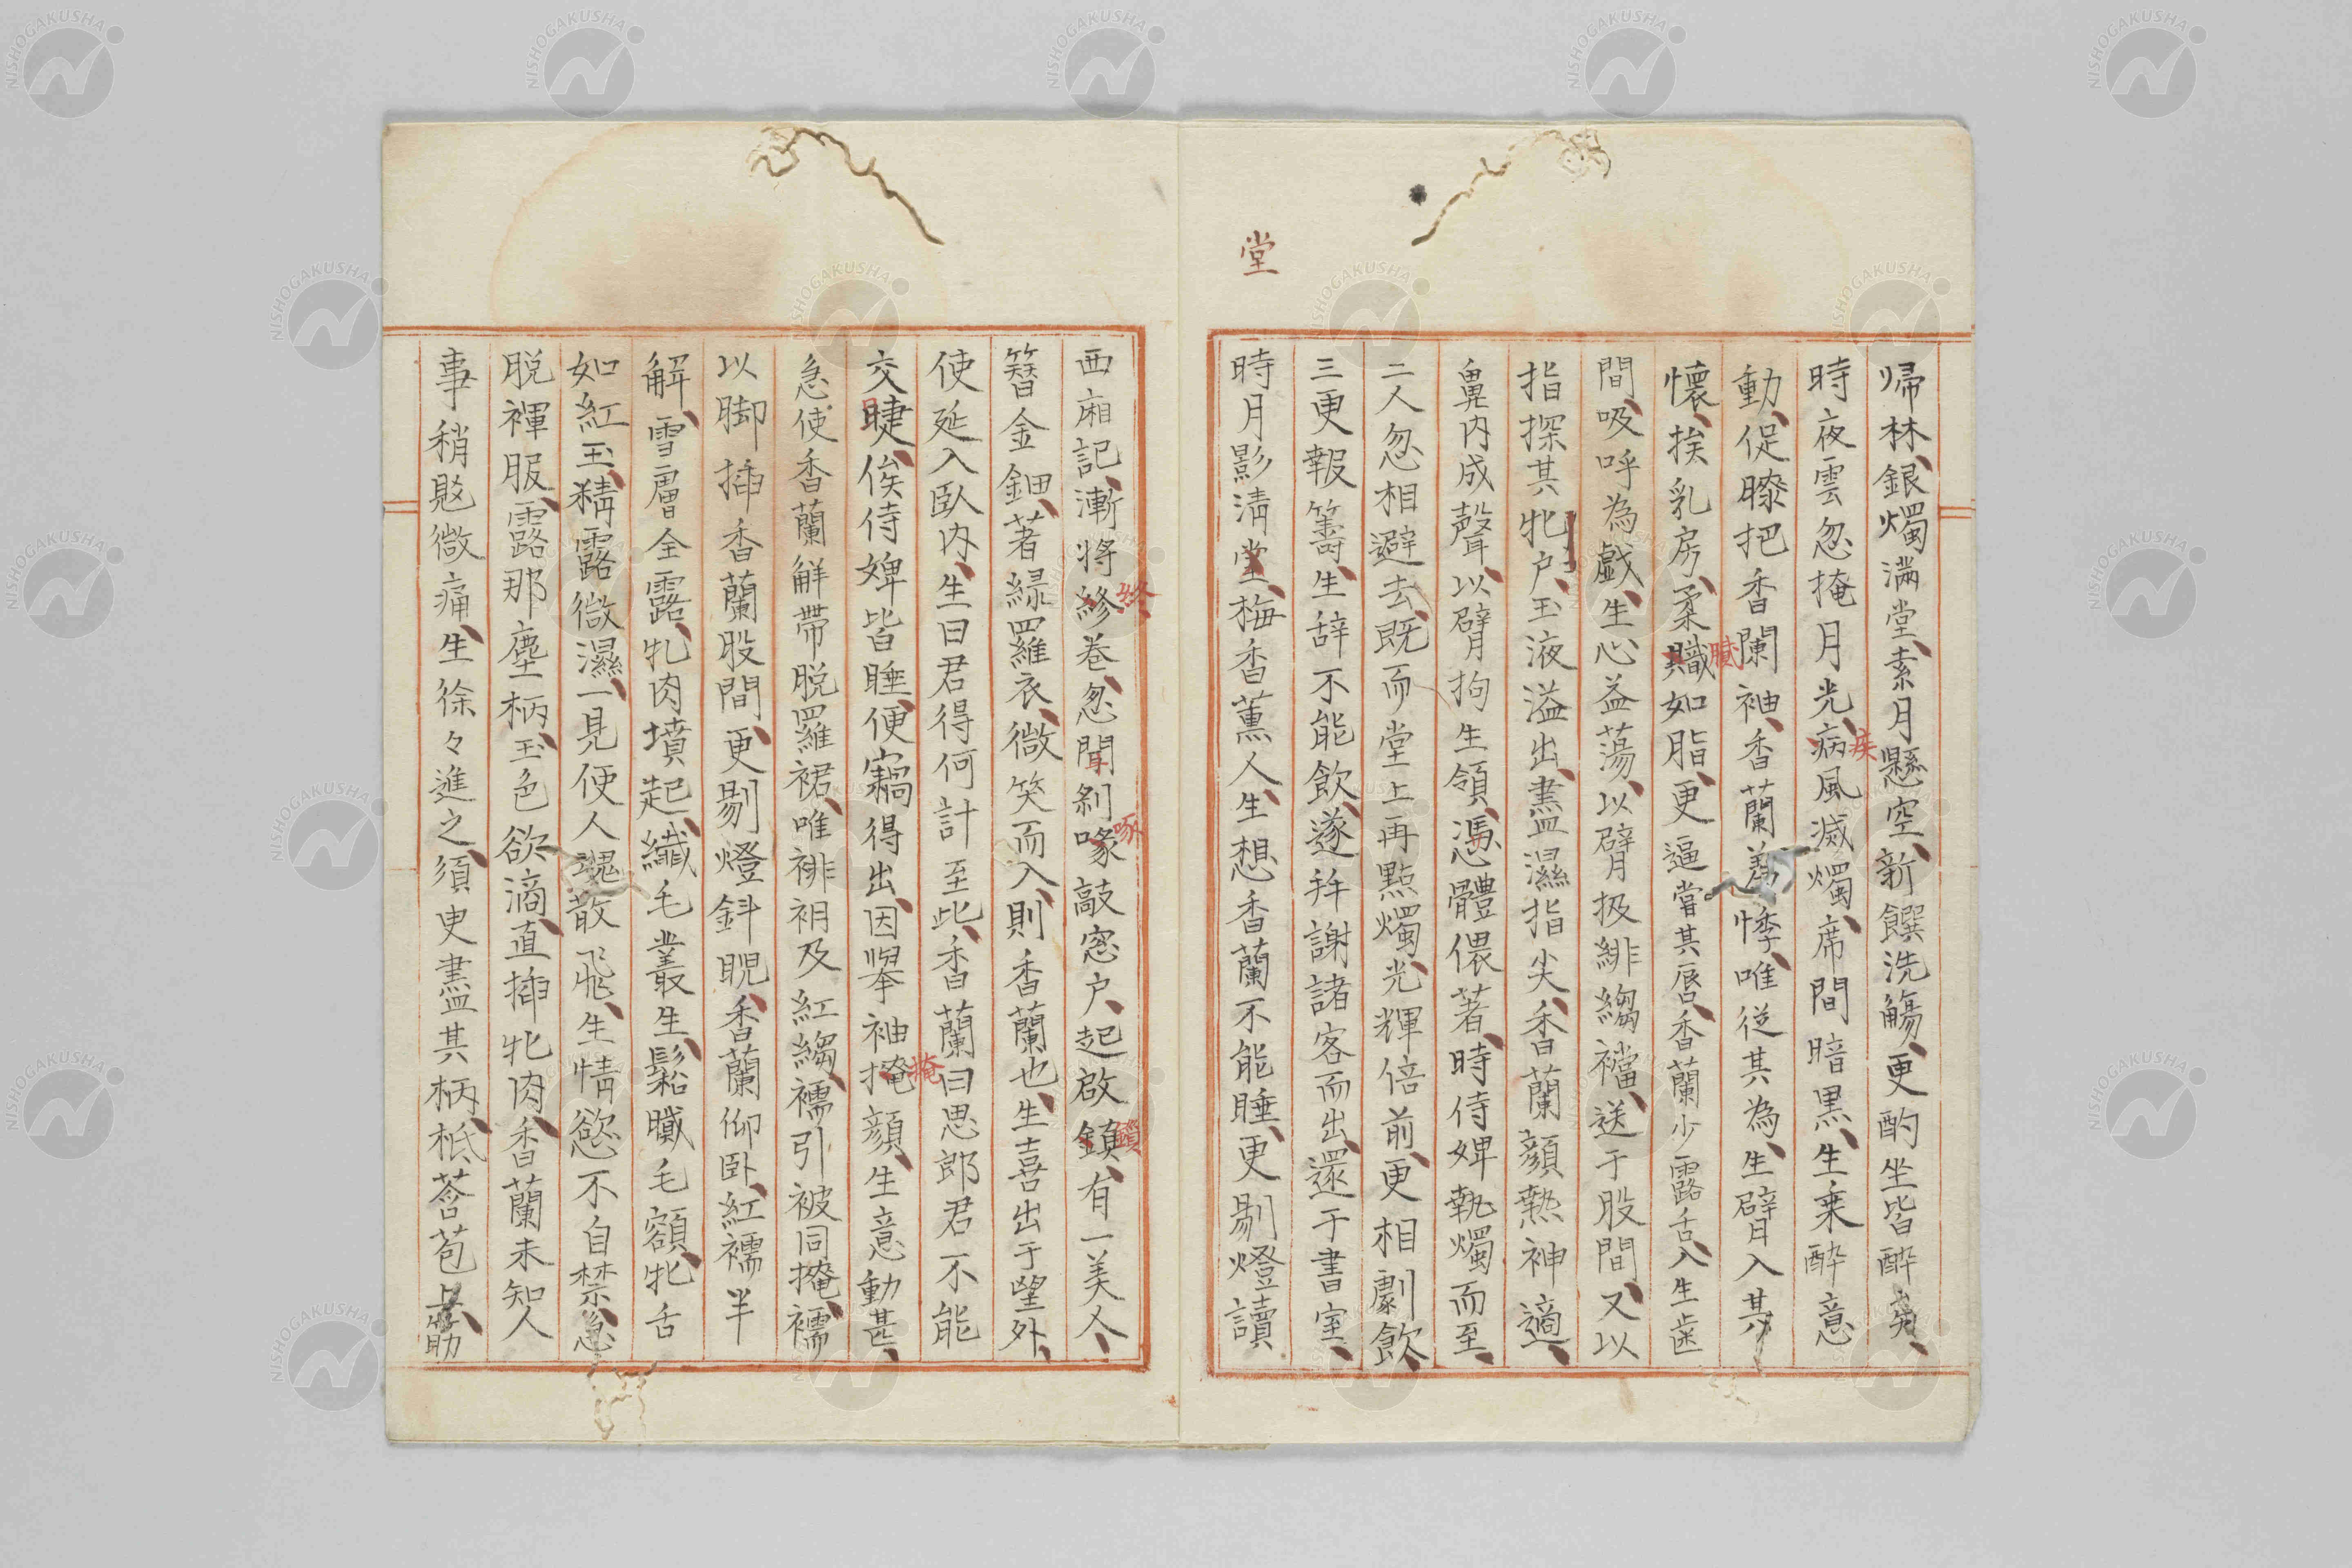 帰林銀燭滿堂素月懸空新饌洗觴更酌坐皆酔
時夜雲忽掩月光病風滅燭席間暗黒生乗酔意
疾
動促膝把香闌袖香蘭為悸唯従其為生臂入其
懐挨乳房柔膱如脂更逼嘗其唇香蘭少露舌入生歯
膩
間吸呼為戯生心益蕩以臂扱緋縐襠送于股間又以
指探其牝户玉液溢出盡濕指尖香蘭顔熱神適
鼻内成聲以臂拘生領憑體偎著時侍婢執燭而至
二人忽相避去既而堂上再點燭光輝倍前更相劇飲
三更報籌生辞不能飲遂拜謝諸客而出還于書室
時月影清堂梅香薫人生想香蘭不能睡更剔燈讀
堂
西廂記漸将終巻忽聞剝啄敲窓户起啟鎖有一美人
終
啄
鎖
簪金鈿著緑羅衣微笑而入則香蘭也生喜出于望外
使延入臥内生曰君得何計至此香蘭曰思郎君不能
交睫俟侍婢皆睡便竊得出因擧袖掩顔生意動甚
掩
急使香蘭解帯脱羅裙唯裶袡及紅縐襦引被同掩襦
以脚挿香蘭股間更剔燈斜睨香蘭仰臥紅襦半
解雪層全露牝肉墳起纖毛叢生鬆膱毛額牝舌
如紅玉精露微濕一見便人魂散飛生情慾不自禁急
脱褌服露那塵柄玉色欲滴直挿牝肉香蘭未知人
事稍覐微痛生徐々進之須吏盡其柄柢荅苞